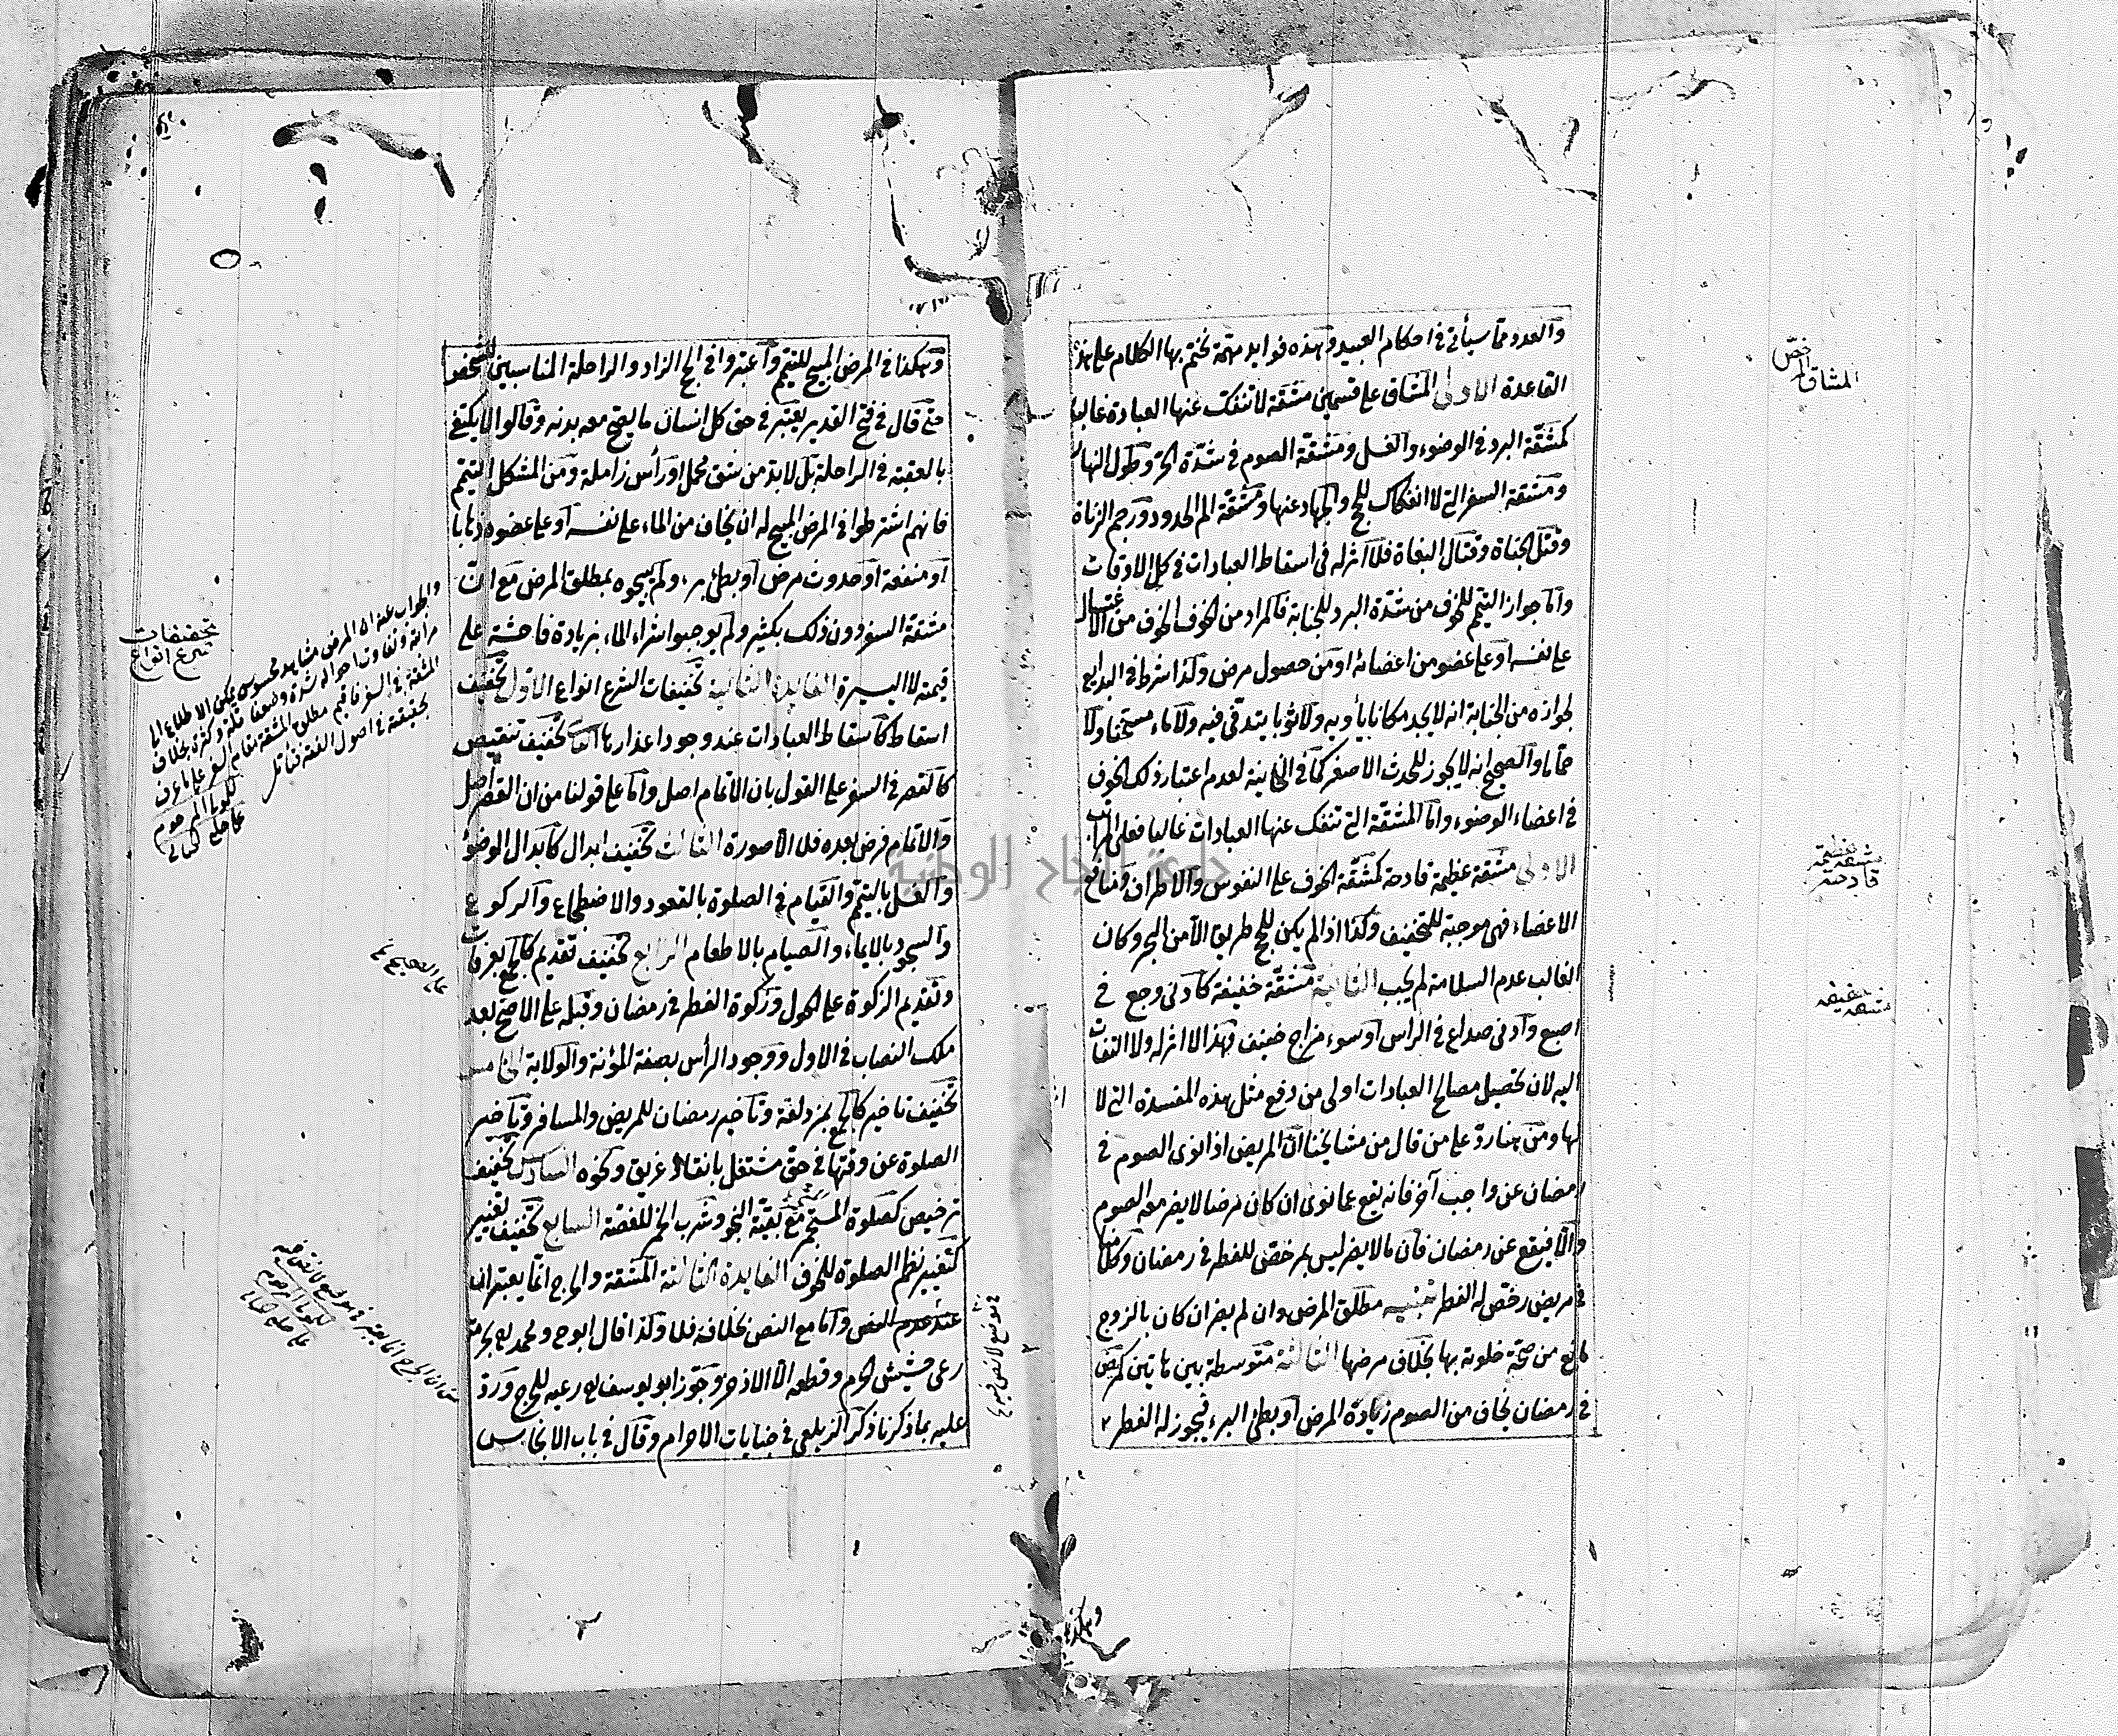 والعدد مما سيأتي في احكام العبيد وهذه فوايد مهمة نختم بها الكلام على هذه
القاعدة الاولى المشاق على قسمين مشقة لا تنفك عنها العبادة غالبا
كمشقة البرد في الوضوء والغسل ومشقة الصوم في شدة الحر وطول النهار
ومشقة السفر التي لا انفكاك للحج والجهاد عنها ومشقة الم الحدود ورجم الزناة
وقتل الجناة وقتال البغاة فلا اثر له في اسقاط العبادات في كل الاوقات
واما جواز التيمم للخوف من شدة البرد للجنابة فالمراد من الخوف الخوف من الاغتسال
على نفسه او على عضو من اعضائه او من حصول مرض وكذا شرط في البدايع
لجوازه من الجنابة انه لا يجد مكانا يأويه ولا ثوبا يتدفى فيه ولا ماء مسخنا ولا
حماما والصحيح انه لا يجوز للحدث الاصغر كما في الخانية لعدم اعتبار ذلك الخوف
في اعضاء الوضوء واما المشقة التي تنفك عنها العبادات غالبا فعلى مراتب
الاولى مشقة عظيمة فادحة كمشقة الخوف على النفوس والاطراف ومنافع
الاعضاء فهي موجبة للتخفيف وكذا اذا لم يكن للحج طريق الا من البحر وكان
الغالب عدم السلامة لم يجب الثانية مشقة خفيفة كادنى وجع في
اصبع وادنى صداع في الراس او سوء مزاج خفيف فهذا لا اثر له ولا التفات
اليه لان تحصيل مصالح العبادات اولى من دفع مثل هذه المفسدة التي لا
لها ومن هنا رد على من قال من مشايخنا ان المريض اذا نوى الصوم في
رمضان عن واجب آخر فانه يقع عما نوى ان كان مرضا لا يضر معه الصوم
والا فيقع عن رمضان فان ما لا يضر ليس بمرخص للفطر في رمضان وكلامنا
في مريض رخص له الفطر تنبيه مطلق المرض وان لم يضر ان كان بالزوج
مانع من صحة خلوته بها بخلاف مرضها الثالثة متوسطة بين هاتين كمريض
في رمضان يخاف من الصوم زيادة المرض او بطئ البرء فيجوز له الفطر
وهكذا
المشاق المرخص
مشقة عظيمة
فادحة
مشقة خفيفة
وهكذا في المرض المبيح للتيمم واعتبروا في الحج الزاد والراحلة المناسبين للشخص
حتى قال في فتح القدير يعتبر في حق كل انسان ما يصح معه بدنه وقالوا لا يكتفى
بالعقبة في الراحلة بل لا بد من شق محمل او رأس زاملة ومن المشكل التيمم
فانهم اشترطوا في المرض المبيح له ان يخاف من الماء على نفسه او على عضوه ذهابا
او منفعة او حدوث مرض او بطئ برء ولم يبيحوه بمطلق المرض مع ان
مشقة السفر دون ذلك بكثير ولم يوجبوا شراء الماء بزيادة فاحشة على
قيمته لا اليسيرة الفايدة الثانية تخفيفات الشرع انواع الاول تخفيف
اسقاط كاسقاط العبادات عند وجود اعذارها الثاني تخفيف تنقيص
كالقصر في السفر على القول بان الاتمام اصل واما على قولنا من ان القصر اصل
والاتمام فرض بعده فلا الا صورة الثالث تخفيف ابدال كابدال الوضوء
والغسل بالتيمم والقيام في الصلوة بالقعود والاضطجاع والركوع
والسجود بالايماء والصيام بالاطعام الرابع تخفيف تقديم كالجمع بعرفات
وتقديم الزكوة على الحول وزكوة الفطر في رمضان وقبله على الاصح بعد
ملك النصاب في الاول ووجود الرأس بصفة المؤنة والولاية الخامس
تخفيف تاخير كالجمع بمزدلفة وتاخير رمضان للمريض والمسافر وتاخير
الصلوة عن وقتها في حق مشتغل بانقاذ غريق ونحوه السادس تخفيف
ترخيص كصلوة المستجمر مع بقية النجو وشرب الخمر للغصة السابع تخفيف تغيير
كتغيير نظم الصلوة للخوف الفايدة الثالثة المشقة والحرج انما يعتبران
عند عدم النص واما مع النص بخلافه فلا وكذا قال ابو ح ومحمد بحرمة
رعي حشيش الحرم وقطعه الا الاذخر وجوز ابو يوسف رعيه للحرج ورد
عليه بما ذكرنا ذكر الزيلعي في جنايات الاحرام وقال في باب الانجاس
تخفيفات
شرع انواع
والجواب عنه ان المرض مشاهد محسوس يمكن الاطلاع الى
مراتبه وتفاوت احواله شدة وضعفا قلة وكثرة بخلاف
المشقة في السفر فاقيم مطلق المشقة مقام السفر على ما عرف
تحقيقه في اصول الفقه فتأمل
على الصحيح
جامعة النجاح الوطنية